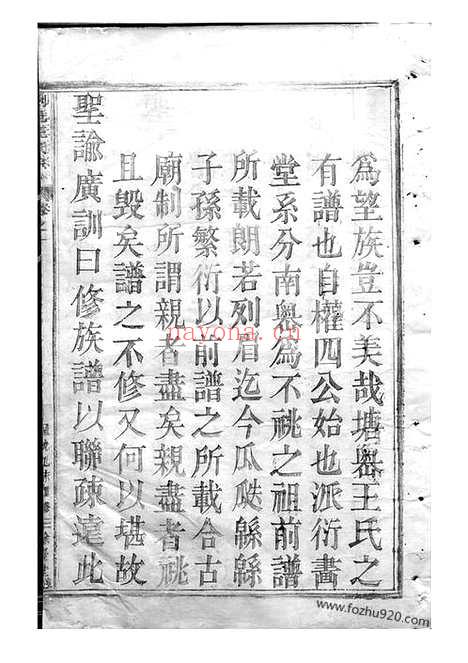 爲望族豈不美哉塘嶴王氏之
有譜也自權四公始也派衍畵
堂系分南嶴爲不祧之祖前譜
所載朗若列眉迄今瓜瓞緜緜
子孫繁衍以前譜之所載合古
廟制所謂親者盡矣親盡者祧
且毁矣譜之不修又何以堪故
聖諭廣訓曰修族譜以聯疎遠此
nayona.cn
www.fozhu920.com